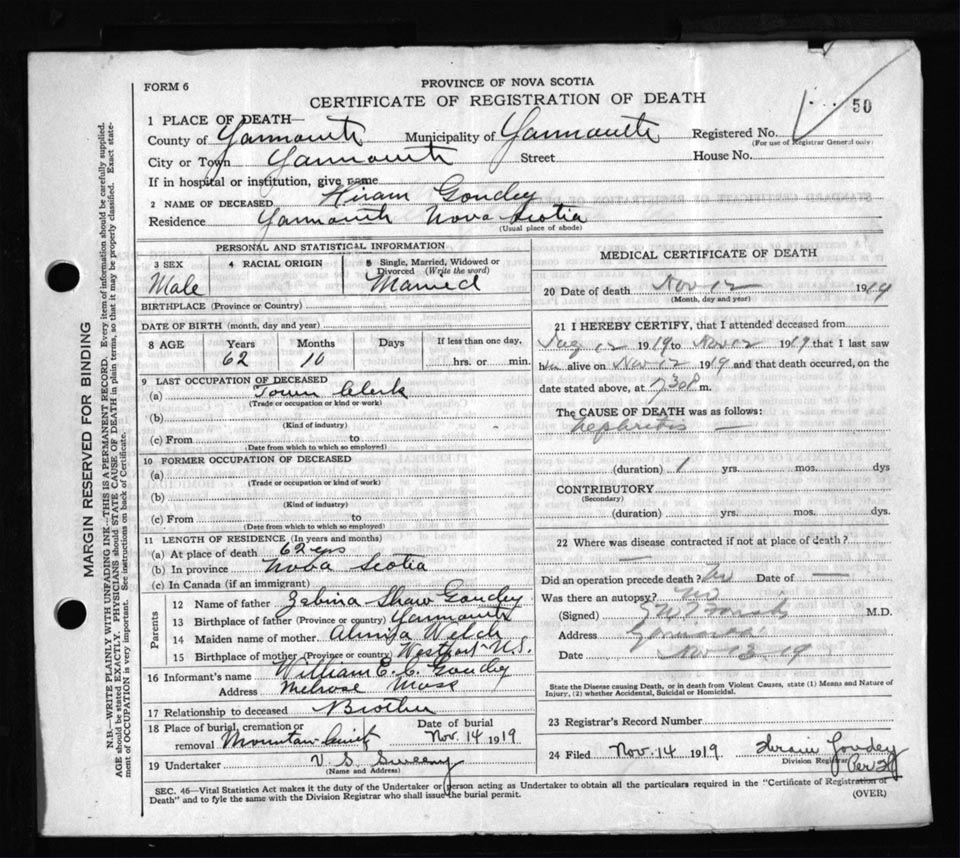 FORM 6
PROVINCE OF NOVA SCOTIA
CERTIFICATE OF REGISTRATION OF DEATH
50
1 PLACE OF DEATH—
County of Yarmouth Municipality of Yarmouth Registered No.
(For use of Registrar General only)
City or Town Yarmouth Street House No.
If in hospital or institution, give name
2 NAME OF DECEASED Hiram Goudey
Residence Yarmouth Nova Scotia
(Usual place of abode)
PERSONAL AND STATISTICAL INFORMATION
3 SEX 4 RACIAL ORIGIN 5 Single, Married, Widowed or Divorced (Write the word)
Male Married
BIRTHPLACE (Province or Country)
DATE OF BIRTH (month, day and year)
8 AGE Years Months Days If less than one day,
62 10 hrs. or min.
9 LAST OCCUPATION OF DECEASED
(a) Town Clerk
(Trade or occupation or kind or work)
(b)
(Kind of industry)
(c) From to
(Date from which to which so employed)
10 FORMER OCCUPATION OF DECEASED
(a)
(Trade or occupation or kind of work)
(b)
(Kind of industry)
(c) From to
(Date from which to which so employed)
11 LENGTH OF RESIDENCE (In years and months)
(a) At place of death 62 yrs
(b) In province Nova Scotia
(c) In Canada (if an immigrant)
Parents
12 Name of father Zebina Shaw Goudey
13 Birthplace of father (Province or country) Yarmouth
14 Maiden name of mother Welch
15 Birthplace of mother (Province or country) Westport N.S.
16 Informant's name William E. C. Goudey
Address Melrose Mass
17 Relationship to deceased Brother
18 Place of burial, cremation or removal Mountain Date of burial Nov. 14 1919
19 Undertaker V. S. Sweeny
(Name and Address)
MEDICAL CERTIFICATE OF DEATH
20 Date of death Nov 12 1919
(Month, day and year)
21 I HEREBY CERTIFY, that I attended deceased from
Aug 12 1919 to Nov 12 1919 that I last saw
him alive on Nov 12 1919 and that death occurred, on the
date stated above, at 730 P m.
The CAUSE OF DEATH was as follows:
Nephritis —
(duration) 1 yrs. mos. dys
CONTRIBUTORY
(Secondary)
(duration) yrs. mos. dys.
22 Where was disease contracted if not at place of death?
—
Did an operation precede death? No Date of —
Was there an autopsy? No
(Signed) M.D.
Address Yarmouth
Date Nov 13 19
State the Disease causing Death, or in death from Violent Causes, state (1) Means and Nature of
Injury, (2) whether Accidental, Suicidal or Homicidal.
23 Registrar's Record Number
24 Filed Nov. 14 1919 Hiram Goudey
Division Registrar
Per
SEC. 46—Vital Statistics Act makes it the duty of the Undertaker or person acting as Undertaker to obtain all the particulars required in the "Certificate of Registration of
Death" and to fyle the same with the Division Registrar who shall issue the burial permit.
(OVER)
MARGIN RESERVED FOR BINDING
N.B.—WRITE PLAINLY WITH UNFADING INK—THIS IS A PERMANENT RECORD. Every item of information should be carefully supplied.
AGE should be stated EXACTLY. PHYSICIANS should STATE CAUSE OF DEATH in plain terms, so that it may be properly classified. Exact statement
of OCCUPATION is very important. See instructions on back of Certificate.